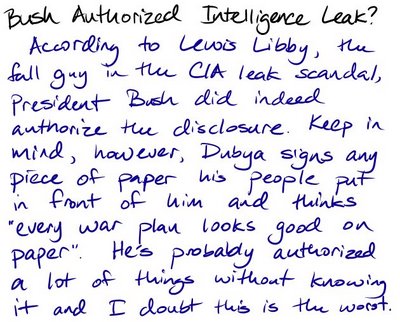 Bush Authorized Intelligence Leak?
According to Lewis Libby, the
fall guy in the CIA leak scandal,
President Bush did indeed
authorize the disclosure. Keep in
mind, however, Dubya signs any
piece of paper his people put
in front of him and thinks
"every war plan looks good on
paper". He's probably authorized
a lot of things without knowing
it and I doubt this is the worst.